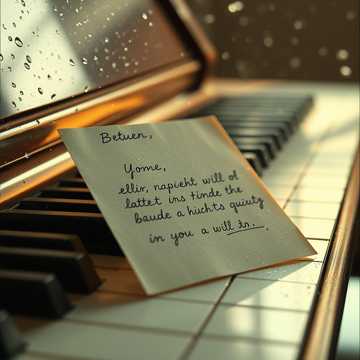 Betuen,
Yome,
ellir, napieht will of
lattet ins tinde the
baude a huchts quiuty
in you a will In..